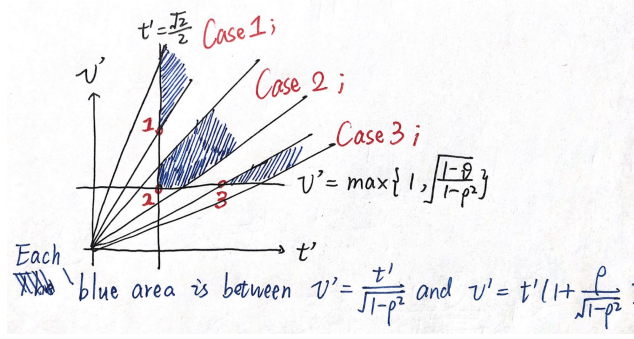 t'=√2/2 Case 1;
v'
Case 2;
1
Case 3;
v' = max{1, √((1-ρ)/(1-ρ²))}
2
3
t'
Each
blue area is between v' = t'/√(1-ρ²) and v' = t'(1+ ρ/√(1-ρ²)